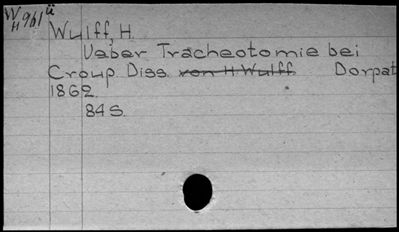 W H 961 ü
Wulff, H.
Ueber Tracheotomie bei
Croup Diss. von H Wulff. Dorpat
1862.
84 S.